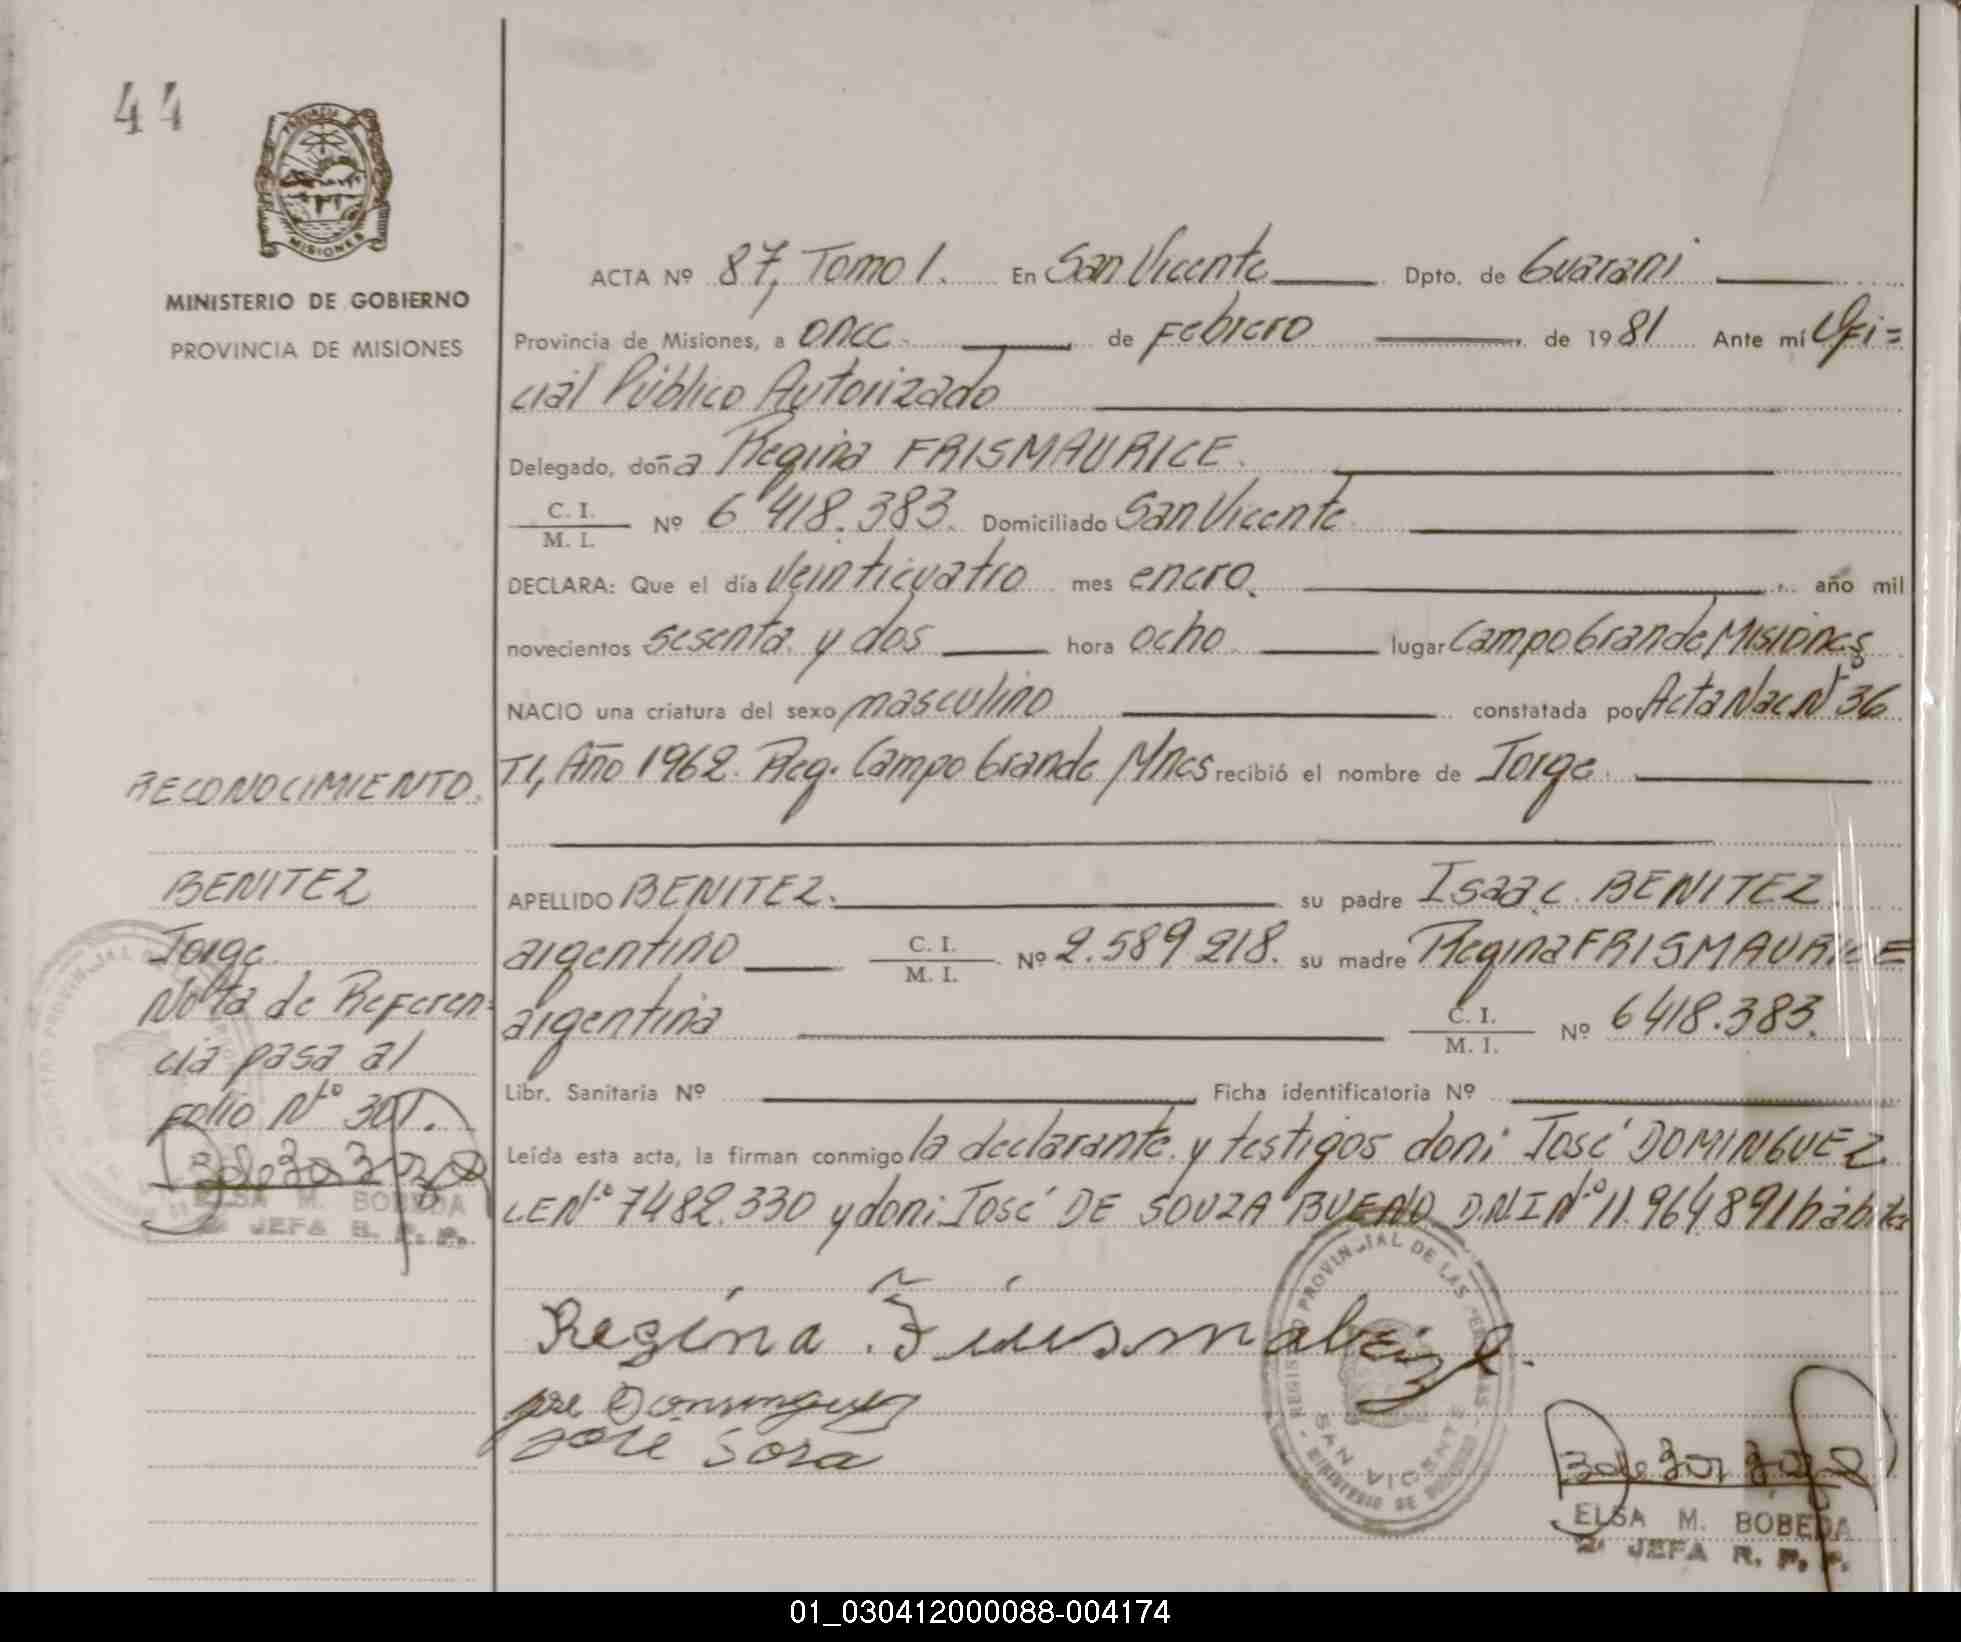 44
PROVINCIA DE
MISIONES
MINISTERIO DE GOBIERNO
PROVINCIA DE MISIONES
ACTA Nº 87, Tomo 1. En San Vicente Dpto. de Guarani
Provincia de Misiones, a once de Febrero de 1981 Ante mí Ofi=
cial Público Autorizado
Delegado, doña Regina FRISMAURICE.
C. I.
M. I.
Nº 6 418.383. Domiciliado San Vicente
DECLARA: Que el día veinticuatro mes enero. año mil
novecientos sesenta y dos hora ocho lugar Campo Grande, Misiones
NACIO una criatura del sexo masculino constatada por Acta Nac Nº 36
RECONOCIMIENTO. T1, Año 1962. Reg. Campo Grande Mnes recibió el nombre de Jorge
BENITEZ
APELLIDO BENITEZ. su padre Isaac BENITEZ
Jorge
argentino C. I.
M. I.
Nº 2.589.218. su madre Regina FRISMAURICE
Nota de Referen=
argentina C. I.
M. I.
Nº 6418.383.
cia pasa al
Libr. Sanitaria Nº Ficha identificatoria Nº
Folio Nº 301.
Leída esta acta, la firman conmigo la declarante y testigos don: José DOMINGUEZ
LE Nº 7482.330 y don: José DE SOUZA BUENO D.N.I Nº 11.964891 hábiles
ELSA M. BOBEDA
2ª JEFA R. P. P.
Regina
José Dominguez
José Sosa
REGISTRO PROVINCIAL DE LAS PERSONAS
SAN VICENTE
MINISTERIO DE GOBIERNO
ELSA M. BOBEDA
2ª JEFA R. P. P.
01_030412000088-004174